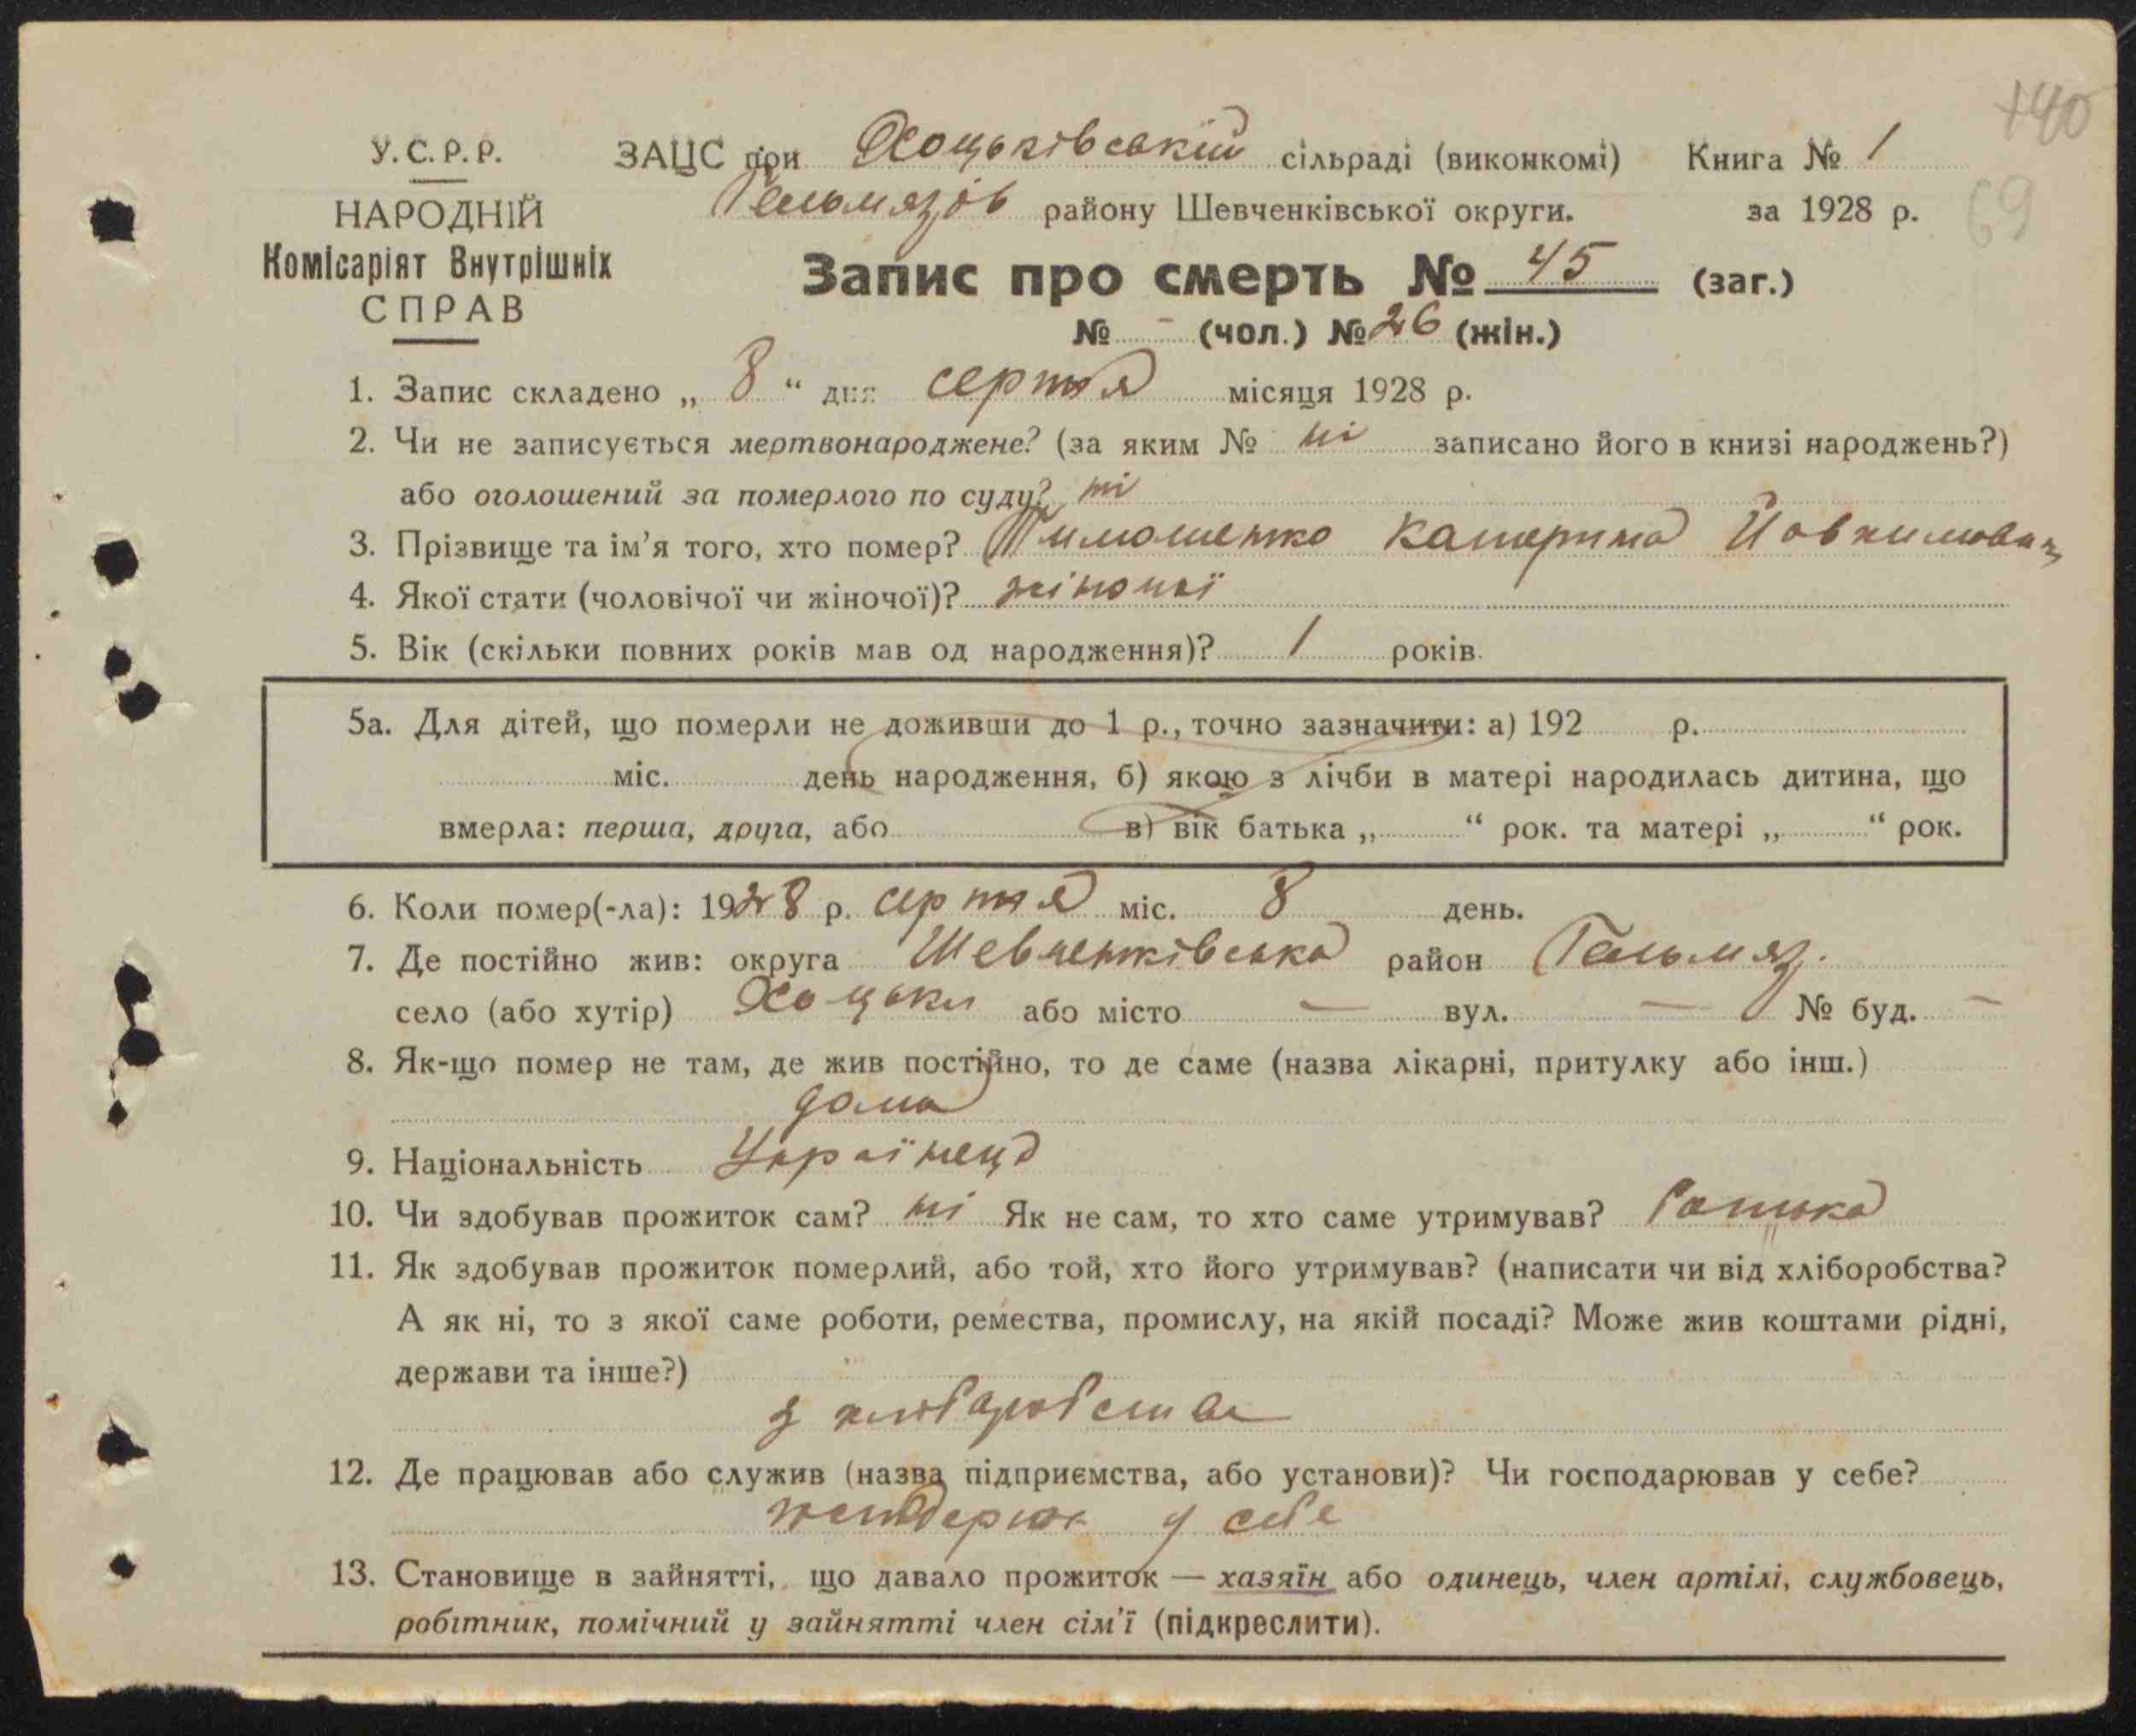 140
У.С.Р.Р. ЗАЦС при Хоцьківській сільраді (виконкомі) Книга № 1
НАРОДНІЙ Гельмязів району Шевченківської округи. за 1928 р. 69
Комісаріят Внутрішніх
СПРАВ
Запис про смерть № 45 (заг.)
№ - (чол.) № 26 (жін.)
1. Запис складено „ 8 “ дня серпня місяця 1928 р.
2. Чи не записується мертвонароджене? (за яким № ні записано його в книзі народжень?)
або оголошений за померлого по суду? ні
3. Прізвище та ім’я того, хто помер? Тимошенко Катерина
4. Якої стати (чоловічої чи жіночої)? жіночої
5. Вік (скільки повних років мав од народження)? 1 років.
5а. Для дітей, що померли не доживши до 1 р., точно зазначити: а) 192 р.
міс. день народження, б) якою з лічби в матері народилась дитина, що
вмерла: перша, друга, або в) вік батька „ “ рок. та матері „ “ рок.
6. Коли помер(-ла): 1928 р. серпня міс. 8 день.
7. Де постійно жив: округа Шевченківська район Гельмяз.
село (або хутір) Хоцьки або місто — вул. — № буд. —
8. Як-що помер не там, де жив постійно, то де саме (назва лікарні, притулку або інш.)
дома
9. Національність Українець
10. Чи здобував прожиток сам? ні Як не сам, то хто саме утримував? батька
11. Як здобував прожиток померлий, або той, хто його утримував? (написати чи від хліборобства?
А як ні, то з якої саме роботи, ремества, промислу, на якій посаді? Може жив коштами рідні,
держави та інше?)
з хліборобства
12. Де працював або служив (назва підприємства, або установи)? Чи господарював у себе?
у себе
13. Становище в зайнятті, що давало прожиток — хазяїн або одинець, член артілі, службовець,
робітник, помічний у зайнятті член сім’ї (підкреслити).